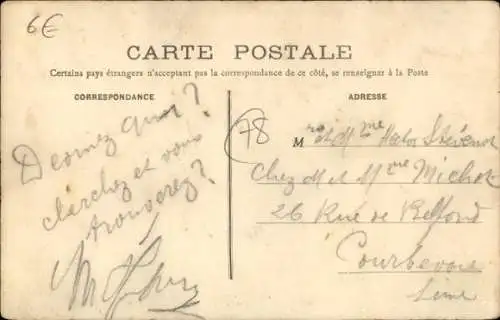 6€
CARTE POSTALE
Certains pays étrangers n'acceptant pas la correspondance de ce côté, se renseigner à la Poste
CORRESPONDANCE
ADRESSE
Devinez qui?
cherchez et vous
trouverez?
78
Mr et Mme Hector Stévenot
Chez M et Mme Michot
26 Rue de Belfond
Courbevoie
Seine